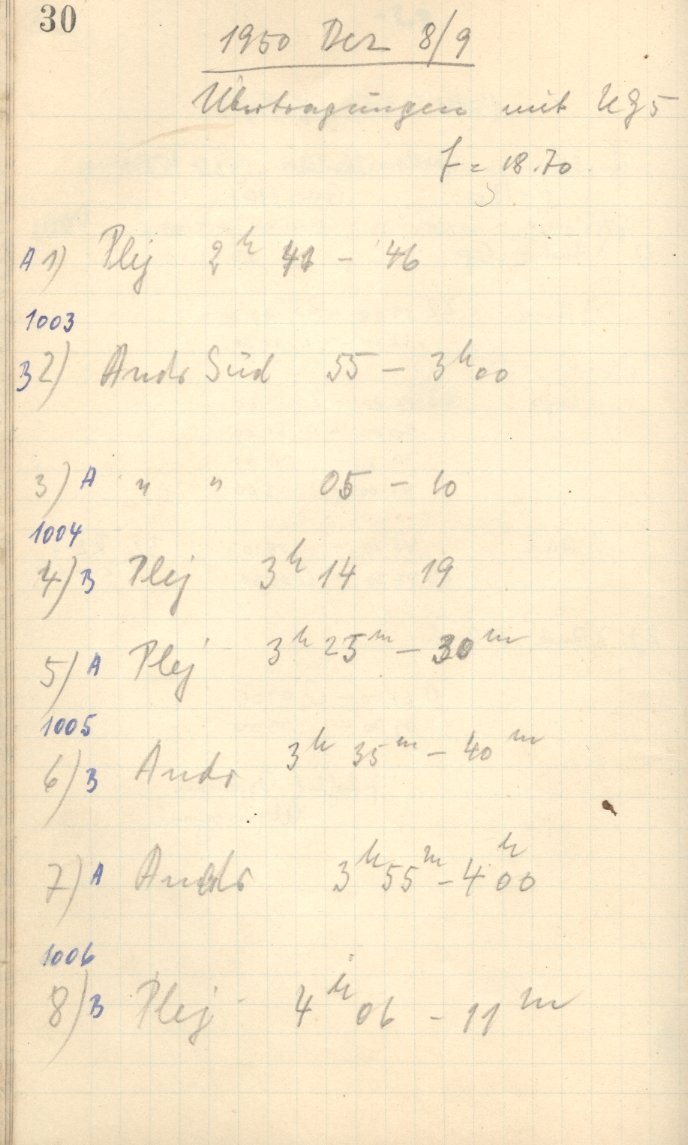 30
1950 Dez 8/9
Übertragungen mit UG5
f = 18.70
A 1) Plej 2h 41 - 46
1003
B 2) Andr Süd 55 - 3h00
3) A " " 05 - 10
1004
4) B Plej 3h 14 19
5) A Plej 3h 25m - 30m
1005
6) B Andr 3h 35m - 40m
7) A Andr 3h 55m - 4h 00
1006
8) B Plej 4h 06 - 11m